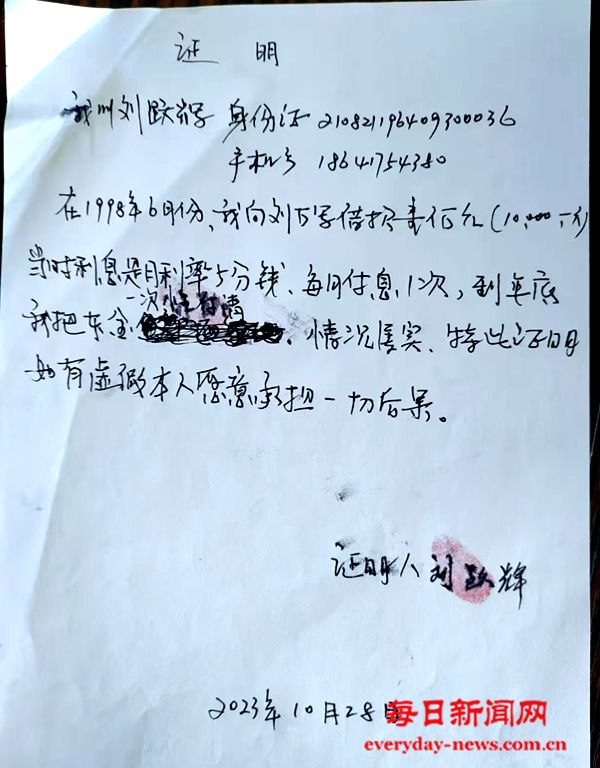 证 明
我叫刘跃辉 身份证210821196409300036
手机号 18641754380
在1998年6月份、我向刘万军借款壹万元(10,000-元)
当时利息是月利率5分钱、每月付息1次,到年底
一次性付清
我把本金 . 情况属实、特此证明
如有虚假本人愿意承担一切后果。
证明人 刘跃辉
2023年10月28日
每日新闻网
everyday-news.com.cn